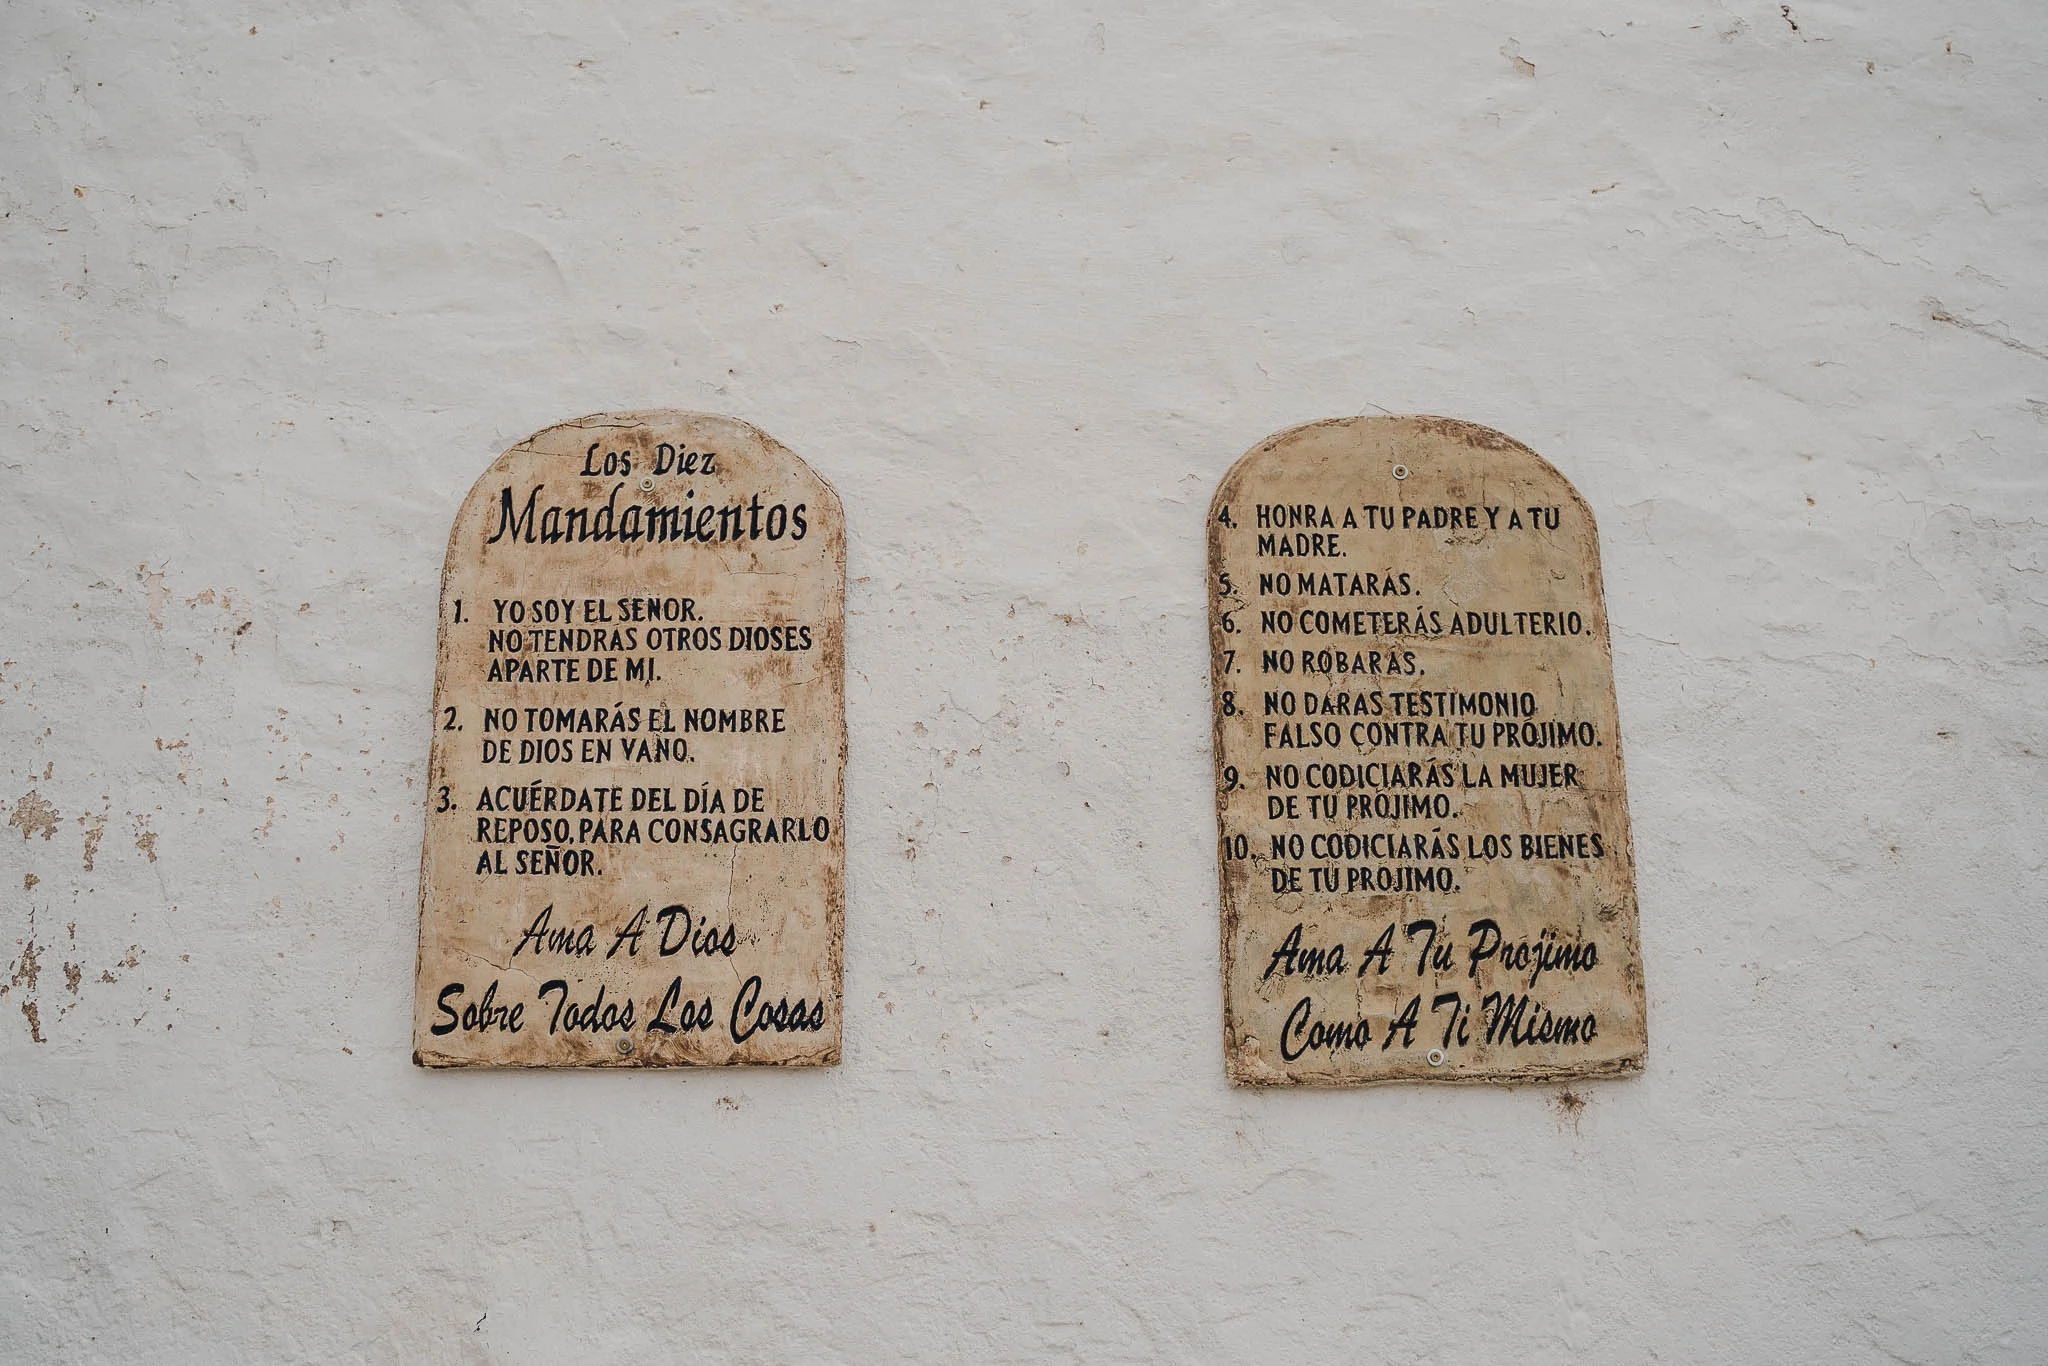 Los Diez
Mandamientos
1. YO SOY EL SEÑOR.
NO TENDRÁS OTROS DIOSES
APARTE DE MI.
2. NO TOMARÁS EL NOMBRE
DE DIOS EN VANO.
3. ACUÉRDATE DEL DÍA DE
REPOSO, PARA CONSAGRARLO
AL SEÑOR.
Ama A Dios
Sobre Todos Los Cosas
4. HONRA A TU PADRE Y A TU
MADRE.
5. NO MATARÁS.
6. NO COMETERÁS ADULTERIO.
7. NO ROBARÁS.
8. NO DARAS TESTIMONIO
FALSO CONTRA TU PRÓJIMO.
9. NO CODICIARÁS LA MUJER
DE TU PRÓJIMO.
10. NO CODICIARÁS LOS BIENES
DE TU PROJIMO.
Ama A Tu Projimo
Como A Ti Mismo